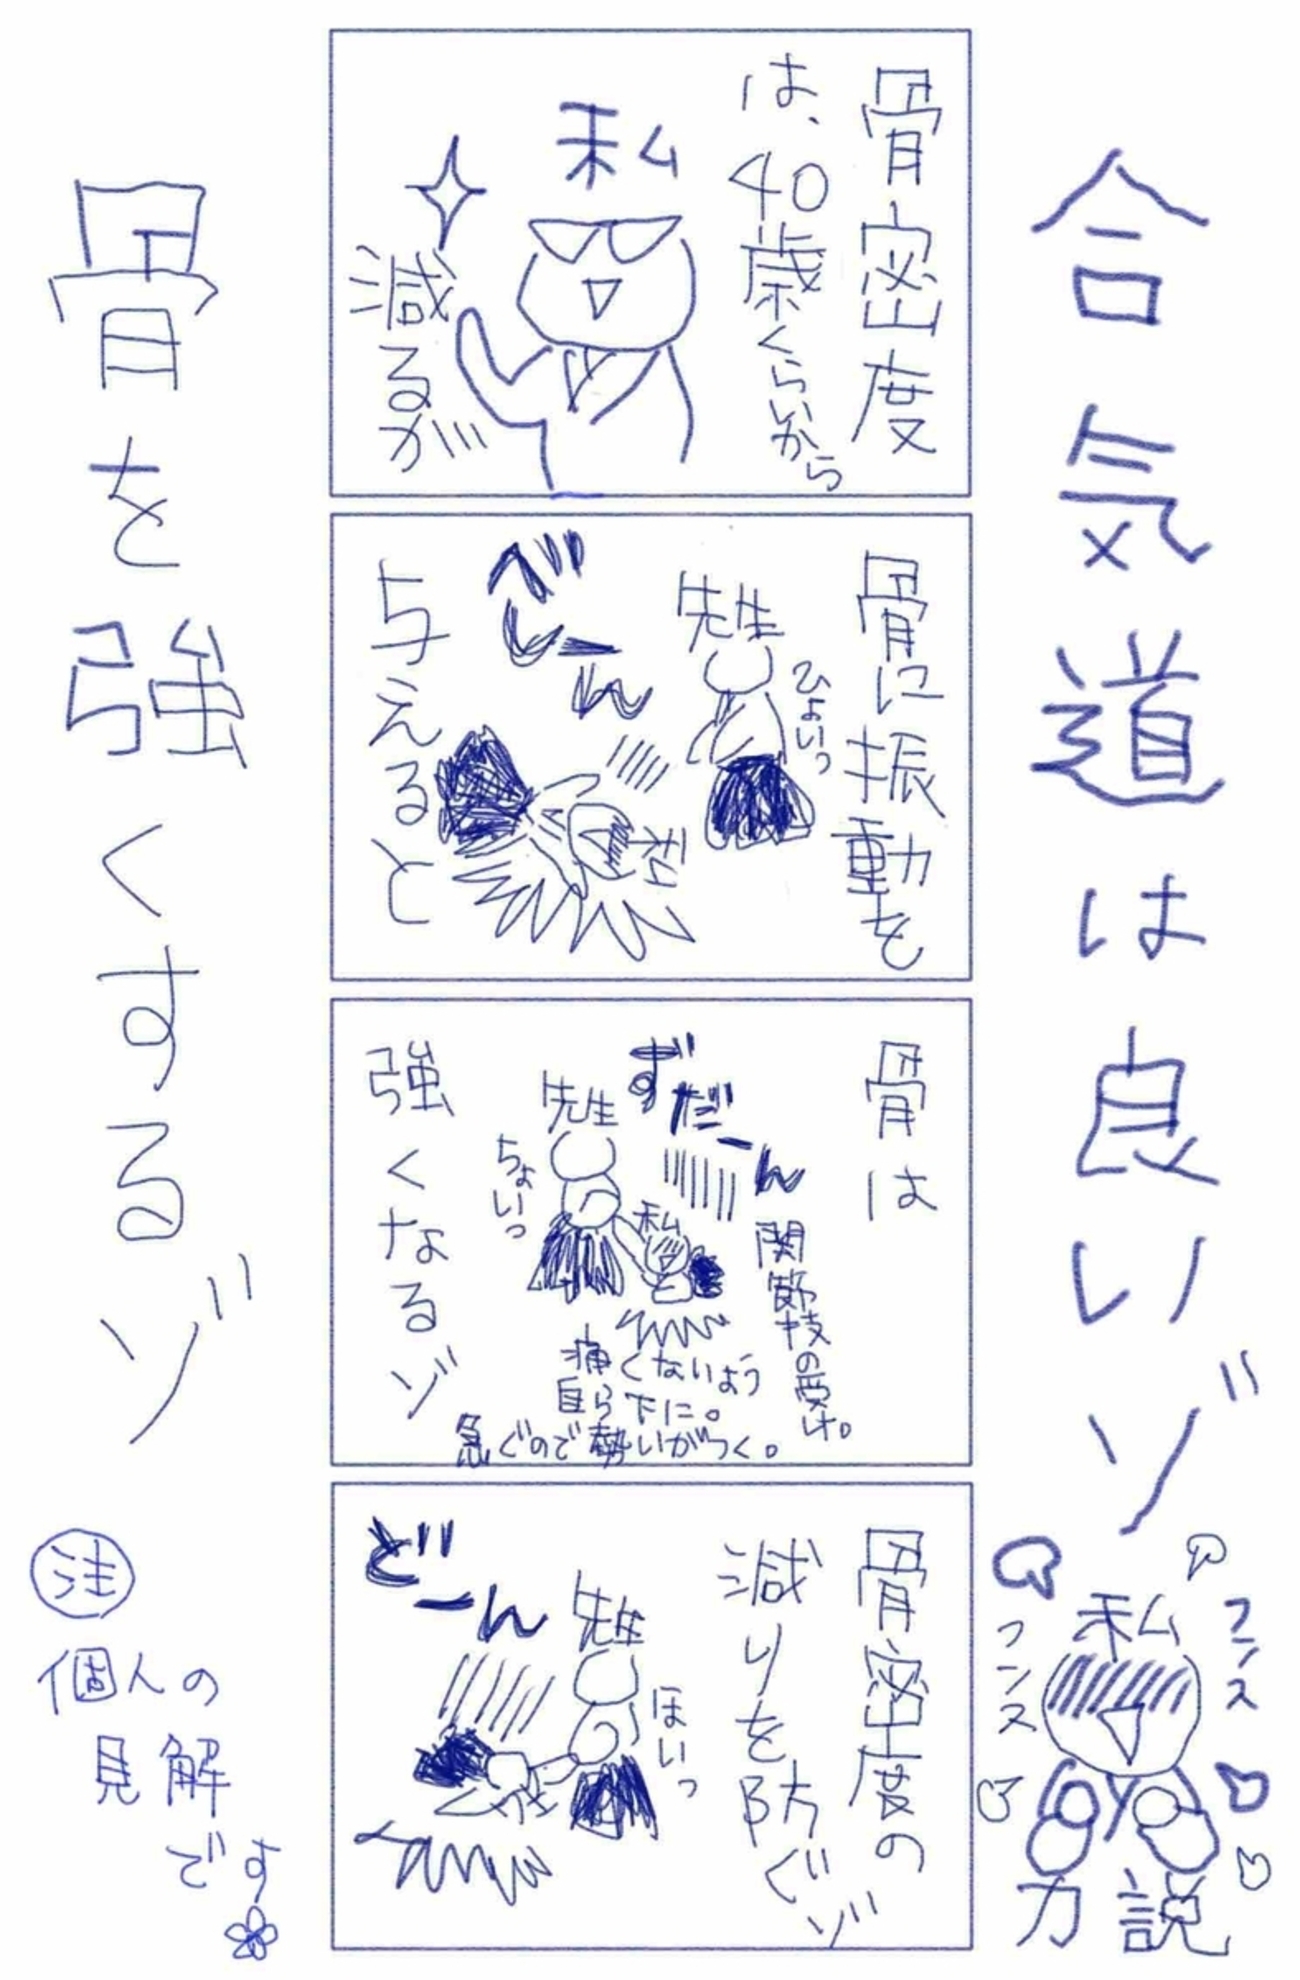 合気道は良いゾ
私
フンス
フンス
力説
骨密度
は、40歳くらいから
私
減るが
骨に振動を
先生
ひょいっ
べしーん
私
与えると
骨は
ずだーん
先生
ちょいっ
私
関節技の受け。
痛くないよう
自ら下に。
急ぐので勢いがつく。
強くなるゾ
骨密度の
減りを防ぐゾ
先生
ほいっ
どーん
私
骨を強くするゾ
注
個人の
見解
です